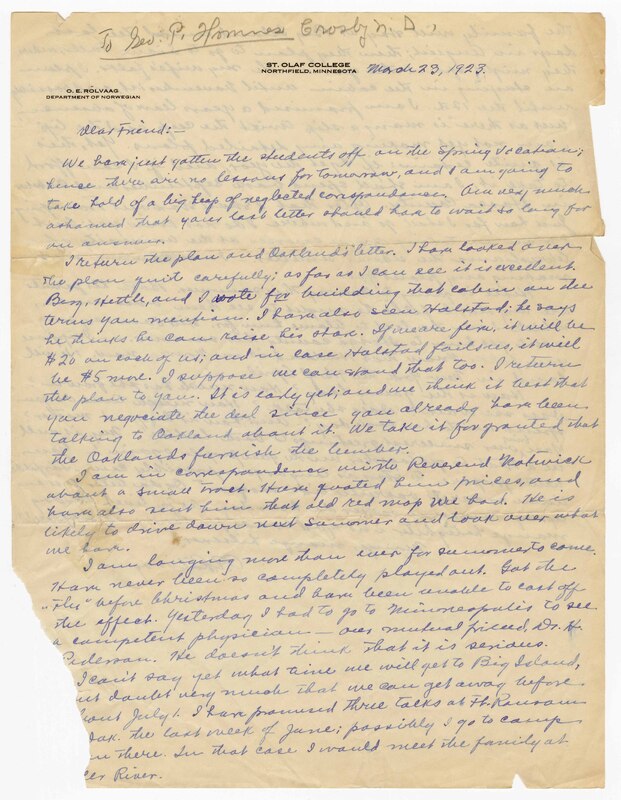 To Geo. P. Homnes Crosby N.D.
ST. OLAF COLLEGE
NORTHFIELD, MINNESOTA
March 23, 1923.
O. E. ROLVAAG
DEPARTMENT OF NORWEGIAN
Dear Friend:-
We have just gotten the students off on the Spring Vocation;
hence there are no lessons for tomorrow, and I am going to
take hold of a big heap of neglected correspondence. Am very much
ashamed that your last letter should have to wait so long for
an answer.
I return the plan and Oakland's letter. I have looked over
the plan quite carefully; as far as I can see it is excellent.
Berg, Hettle, and I vote for building that cabin on the
terms you mention. I have also seen Halstad; he says
he thinks he can raise his share. If we are five, it will be
$20 on each of us; and in case Halstad fails us, it will
be $5 more. I suppose we can stand that too. I return
the plan to you. It is early yet; and we think it best that
you negociate the deal since you already have been
talking to Oakland about it. We take it for granted that
the Oaklands furnish the lumber.
I am in correspondence with Reverend Natwick
about a small tract. Have quoted him prices, and
have also sent him that old red map we had. He is
likely to drive down next Summer and look over what
we have.
I am longing more than ever for summer to come.
Have never been so completely played out. Got the
"Flu" before Christmas and have been unable to cast off
the effect. Yesterday I had to go to Minneapolis to see
a competent physician — our mutual friend, Dr. H.
Pederson. He doesn't think that it is serious.
I can't say yet what time we will get to Big Island,
but doubt very much that we can get away before
about July 1. I have promised three talks at Ft. Ransom
Dak. the last week of June; possibly I go to camp
there. In that case I would meet the family at
River.